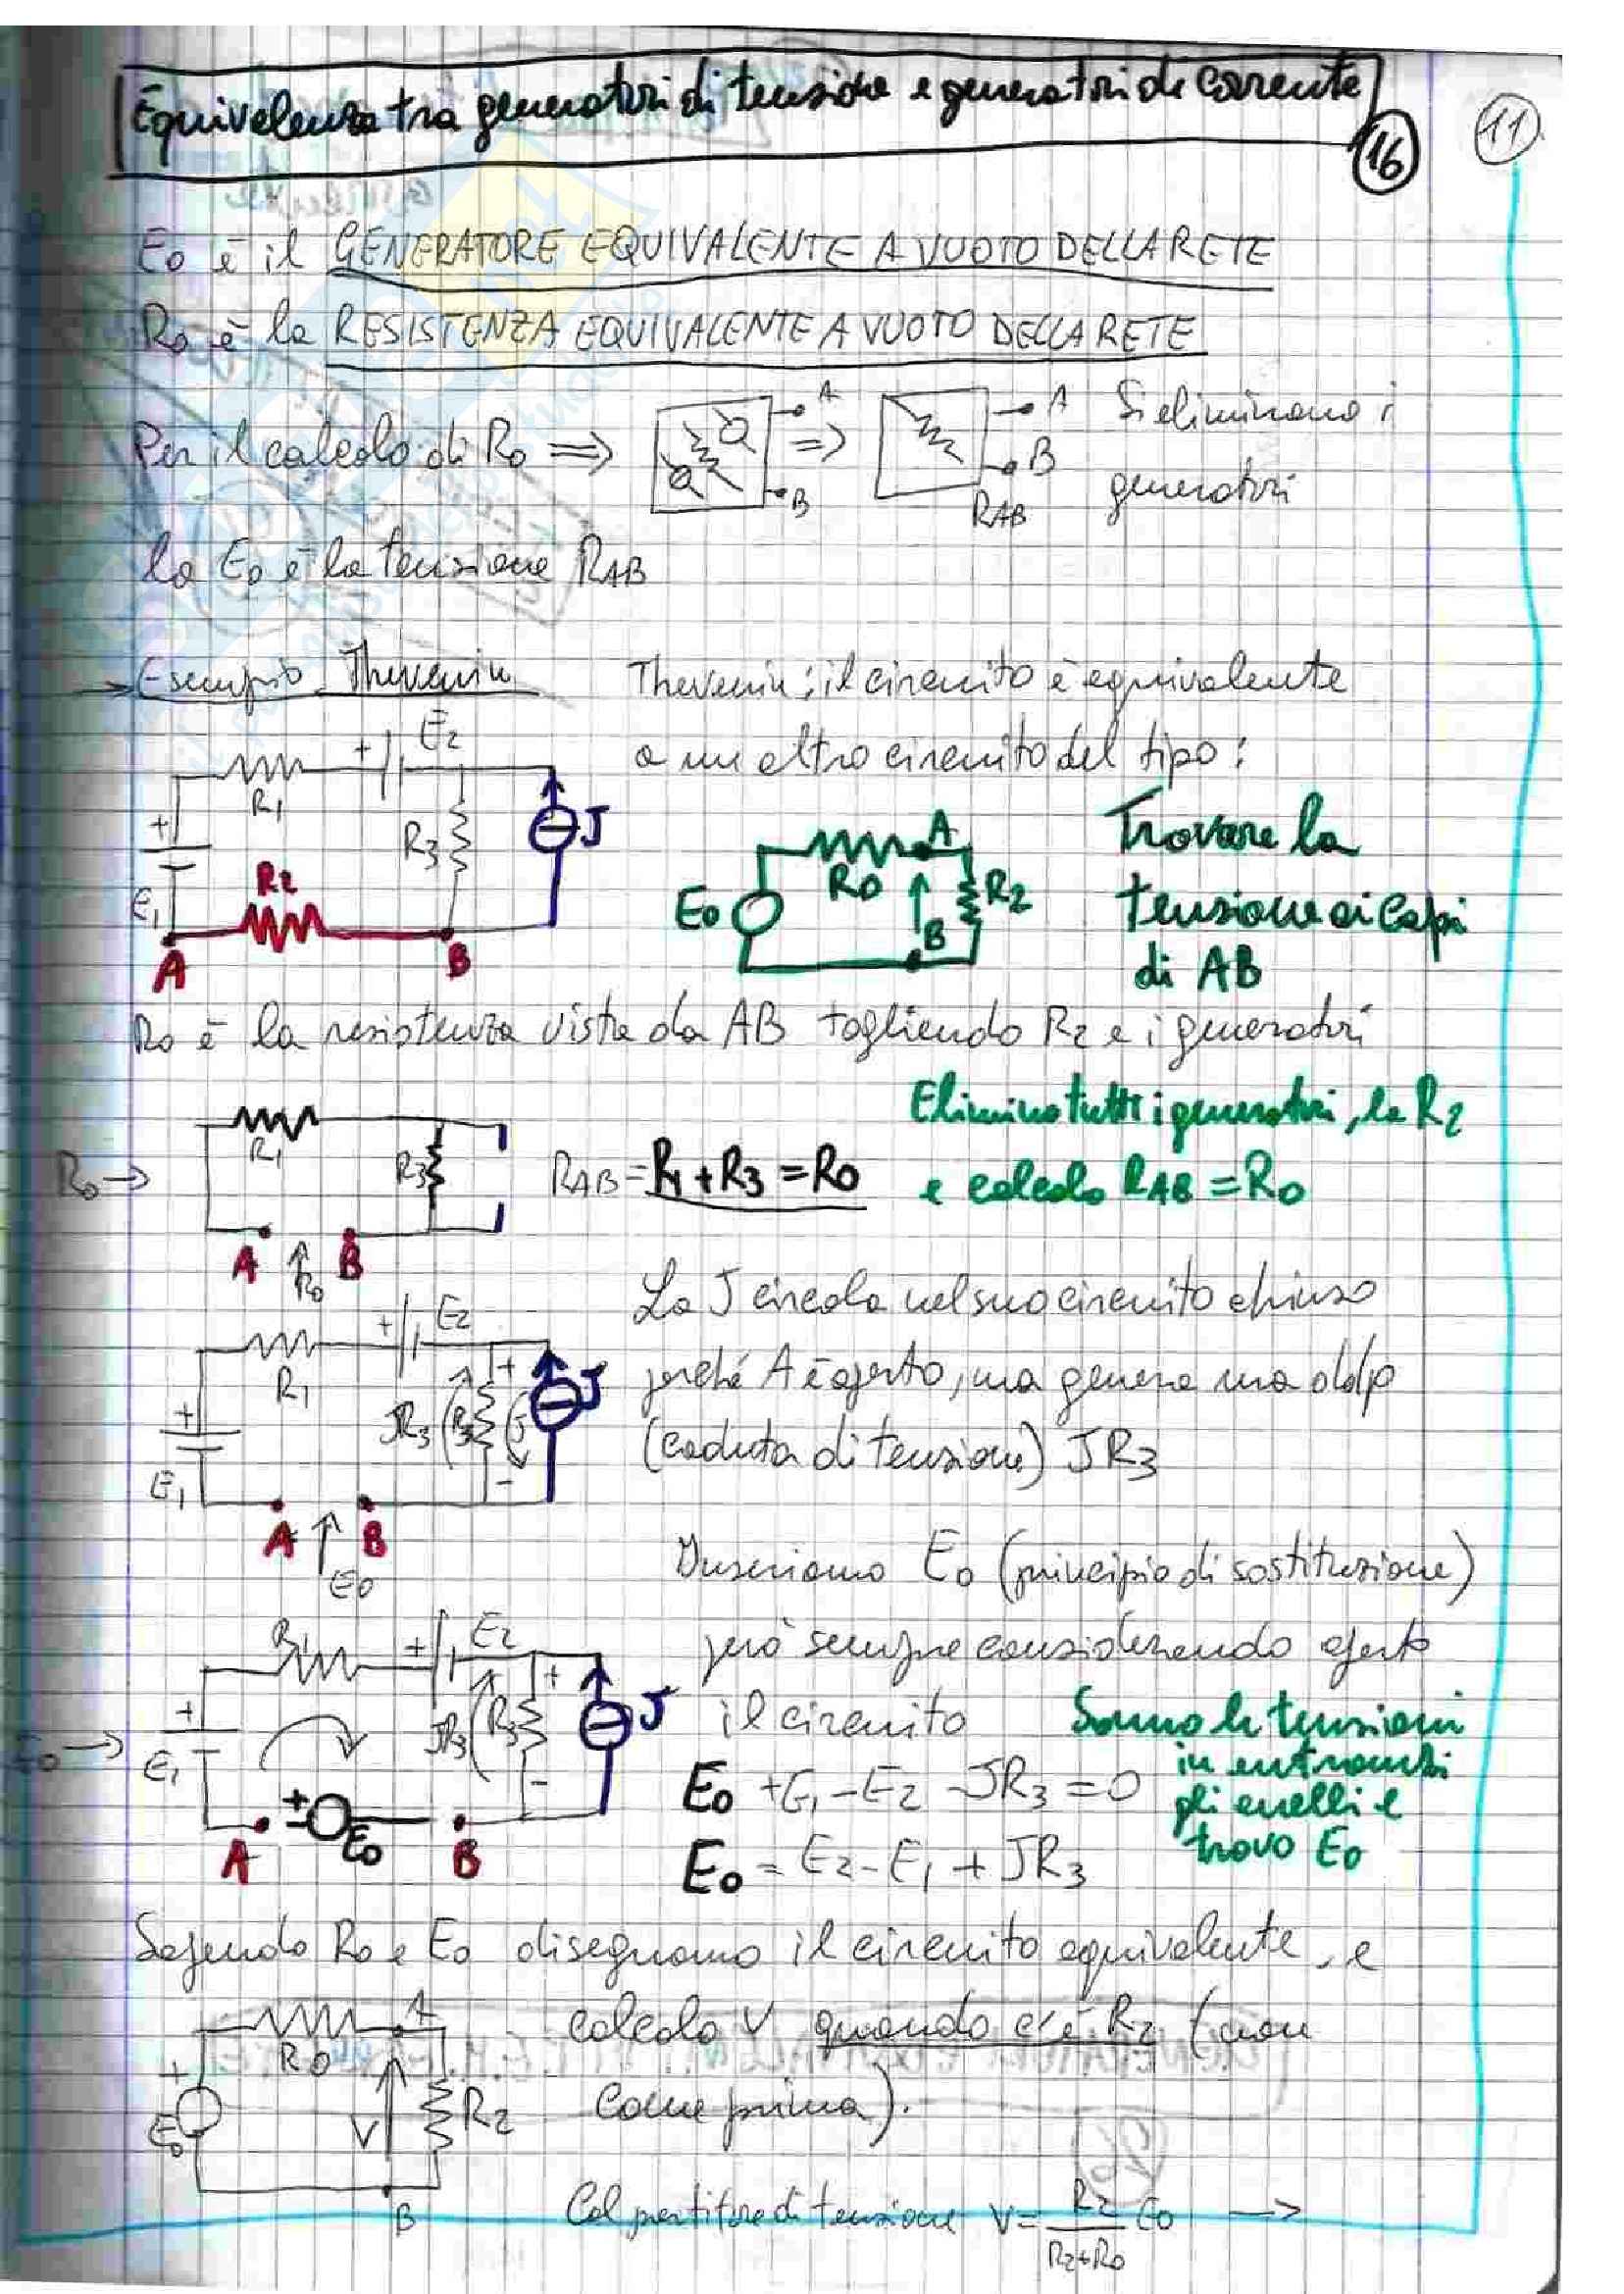 Equivalenza tra generatori di tensione e generatori di corrente
16
11
E0 è il GENERATORE EQUIVALENTE A VUOTO DELLA RETE
R0 è la RESISTENZA EQUIVALENTE A VUOTO DELLA RETE
Per il calcolo di R0 ⇒ A B ⇒ A B RAB Si eliminano i
generatori
la E0 è la tensione RAB
→ Esempio Thevenin
Thevenin: il circuito è equivalente
a un altro circuito del tipo:
+ E2
R1
+
R3
J
E1
R2
A
B
R0
A
E0
R2
B
Trovare la
tensione ai capi
di AB
R0 è la resistenza vista da AB togliendo R2 e i generatori
R0 →
R1
R3
A
B
R0
RAB = R1 + R3 = R0
Elimino tutti i generatori, la R2
e calcolo RAB = R0
La J circola nel suo circuito chiuso
perché A è aperto, ma genera una ddp
(caduta di tensione) JR3
+ E2
R1
+
JR3
R3
+
J
J
-
E1
A
B
E0
Inseriamo E0 (principio di sostituzione)
però sempre considerando aperto
il circuito
R1
+ E2
+
+
JR3
R3
J
E0 →
E1
-
+
-
E0
A
B
E0 + E1 - E2 - JR3 = 0
E0 = E2 - E1 + JR3
Sommo le tensioni
in entrambi
gli anelli e
trovo E0
Sapendo R0 e E0 disegnamo il circuito equivalente, e
calcolo V quando c'è R2 (non
come prima).
A
R0
+
E0
V
R2
B
Col partitore di tensione V = R2/(R2+R0) E0 →